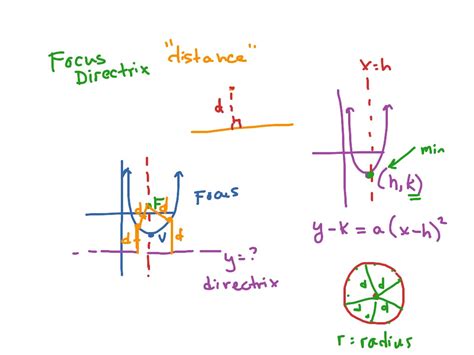 Focus
Directrix
"distance"
d
x=h
min
(h, k)
y-k = a(x-h)²
F
d
d
Focus
d
v
d
y=?
directrix
d
d
d
d
d
r = radius